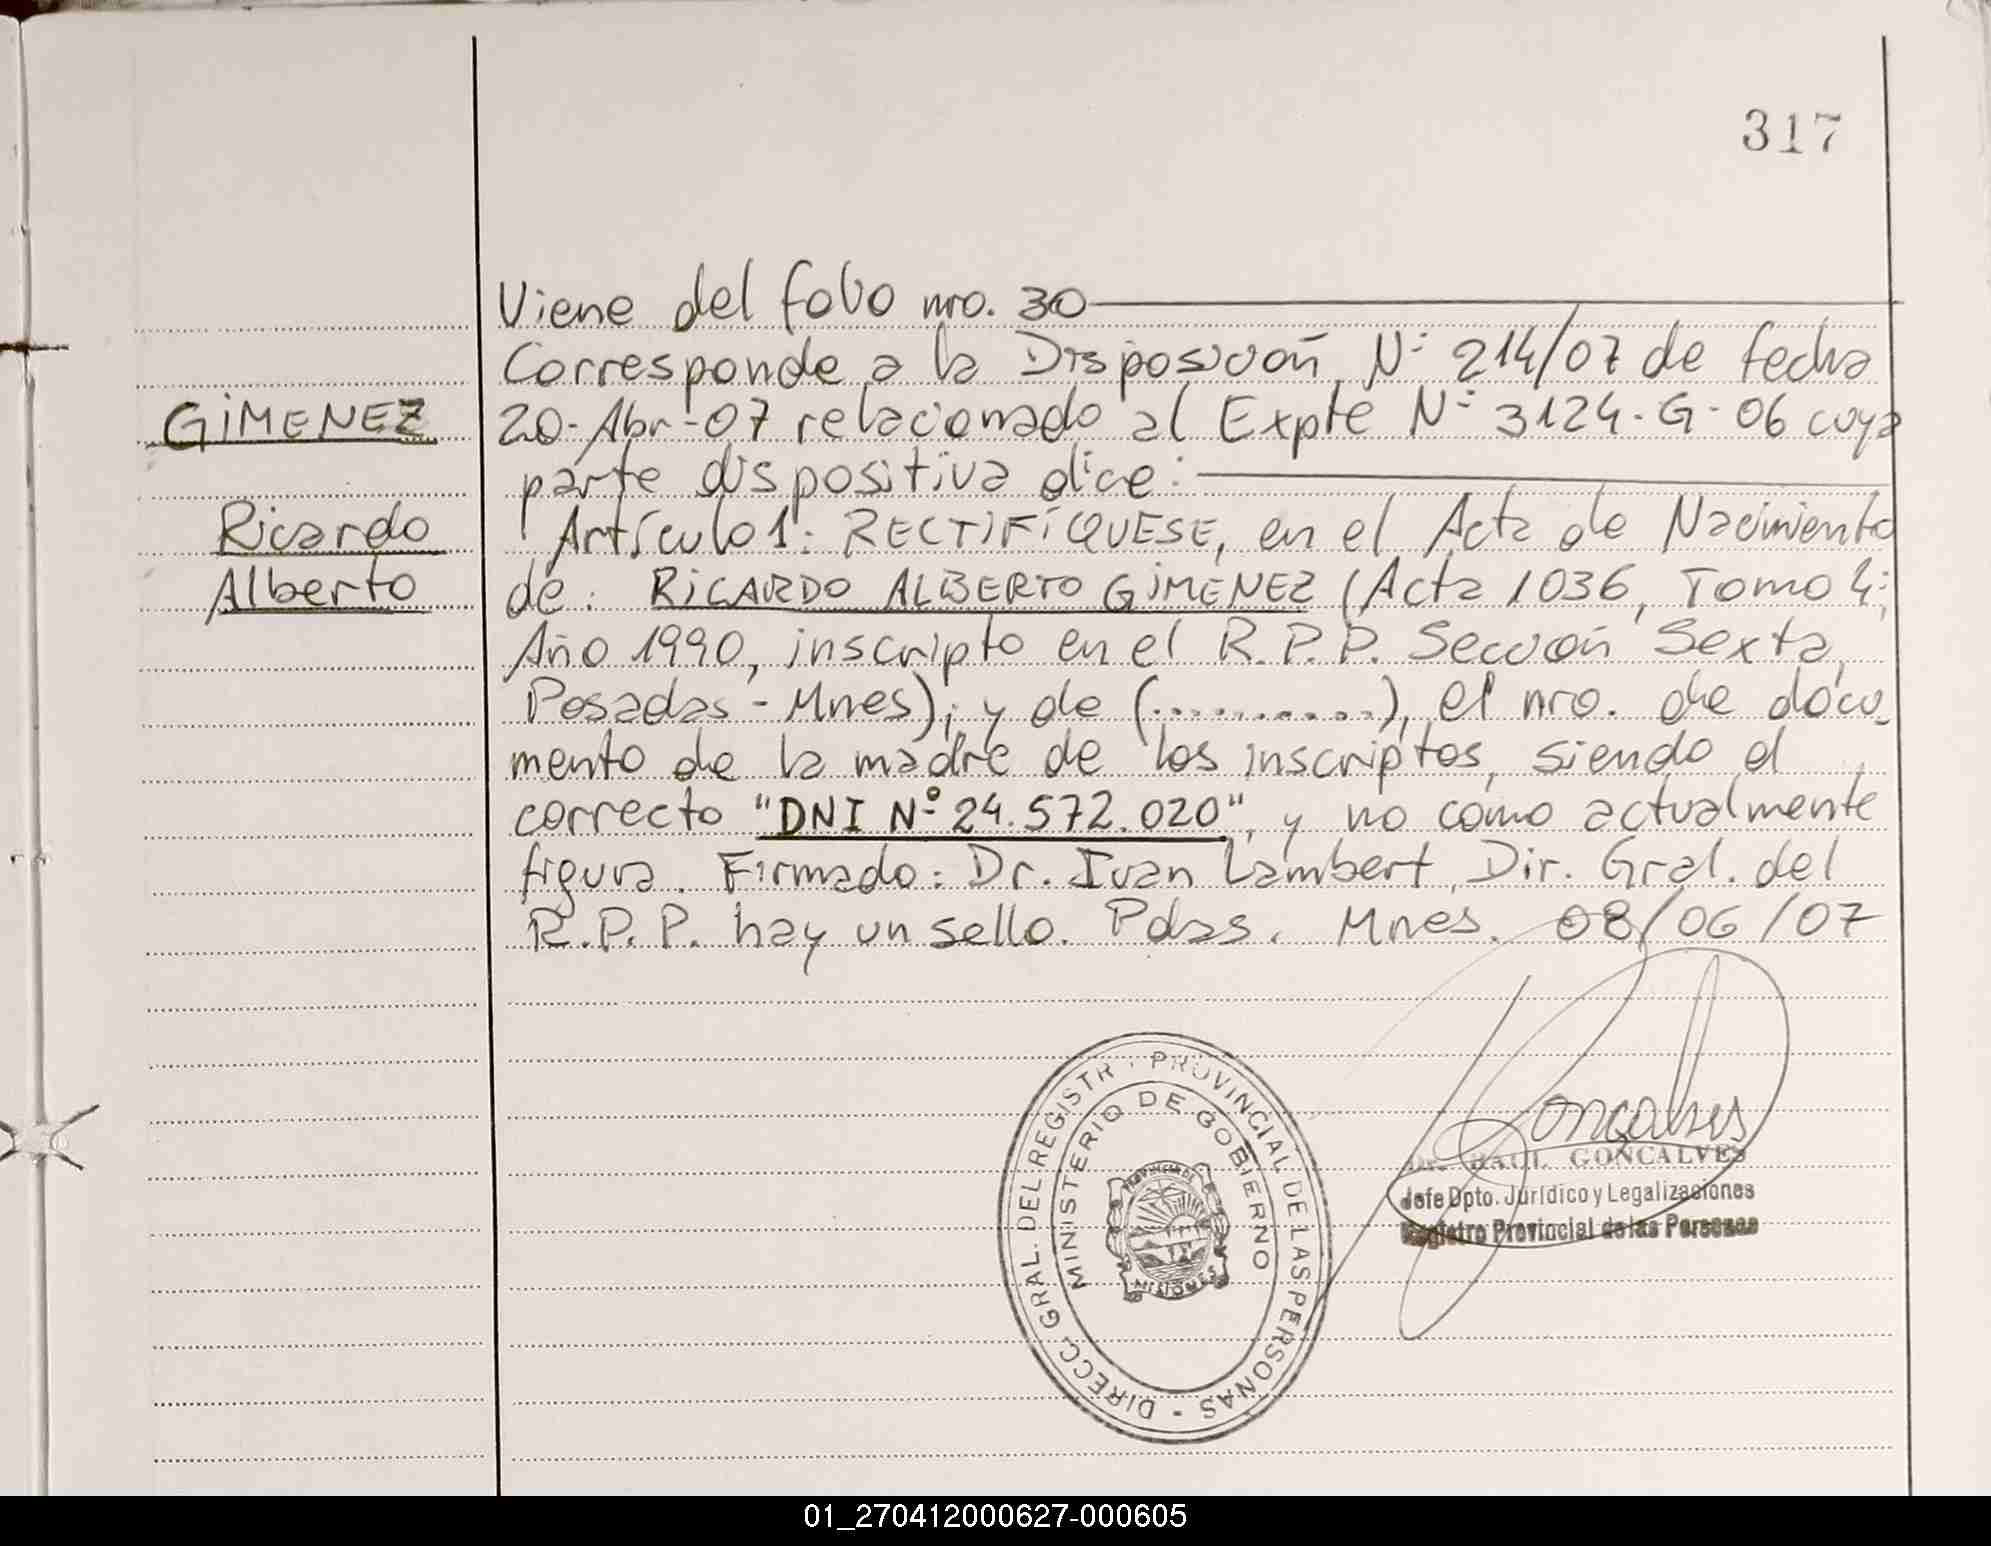 317
Viene del folio nro. 30
Corresponde a la Disposición N° 214/07 de fecha
GIMENEZ
20-Abr-07 relacionado al Expte N° 3124-G-06 cuya
parte dispositiva dice:
Ricardo
Artículo 1: RECTIFÍQUESE, en el Acta de Nacimiento
Alberto
de: RICARDO ALBERTO GIMENEZ (Acta 1036, Tomo 4°,
Año 1990, inscripto en el R.P.P. Sección Sexta,
Posadas - Mnes); y de (...........), el nro. de docu-
mento de la madre de los inscriptos, siendo el
correcto "DNI N° 24.572.020", y no como actualmente
figura. Firmado: Dr. Ivan Lambert, Dir. Gral. del
R.P.P. hay un sello. Pdas. Mnes. 08/06/07
DIRECC. GRAL. DEL REGISTR PROVINCIAL DE LAS PERSONAS -
MINISTERIO DE GOBIERNO
PROVINCIA DE
MISIONES
Goncalves
Dr. RAUL GONCALVES
Jefe Dpto. Jurídico y Legalizaciones
Registro Provincial de las Personas
01_270412000627-000605